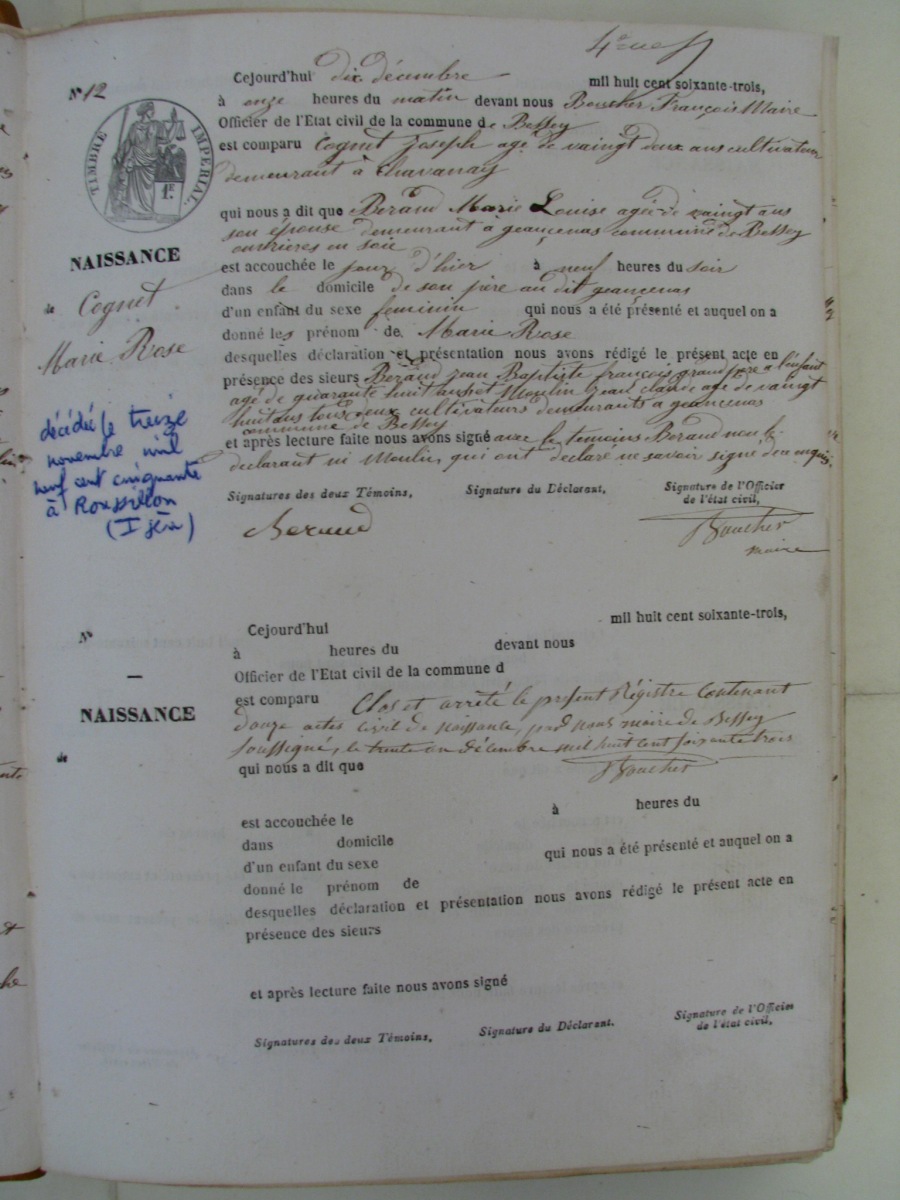 N° 12
TIMBRE IMPÉRIAL
1.F
Cejourd'hui dix décembre mil huit cent soixante-trois,
à onze heures du matin devant nous Boucher François Maire
Officier de l'Etat civil de la commune de Bessey
est comparu Cognet Joseph age de vaingt deux ans cultivateur
demeurant à Chavanay
qui nous a dit que Berand Marie Louise agée de vaingt ans
son épouse demeurant à geancenas commune de Bessey
ouvrieres en soie
est accouchée le jour d'hier à neuf heures du soir
dans le domicile de son père au dit geancenas
d'un enfant du sexe feminin qui nous a été présenté et auquel on a
donné les prénom de Marie Rose
desquelles déclaration et présentation nous avons rédigé le présent acte en
présence des sieurs Berand jean Baptiste françois grand pere a l'enfant
agé de quarante huit ans et Moulin jean claude age de vaingt
huit ans tous deux cultivateurs demeurants a geancenas
commune de Bessey
et après lecture faite nous avons signé avec le temoins Berand non le
declarant ni Moulin, qui ont declaré ne savoir signé de ce enquis
Signatures des deux Témoins, Signature du Déclarant, Signature de l'Officier
de l'état civil,
Berand
Boucher
maire
NAISSANCE
de Cognet
Marie Rose
décédée le treize
novembre mil
neuf cent cinquante
à Roussillon
(Isère)
N°
NAISSANCE
de
Cejourd'hui mil huit cent soixante-trois,
à heures du devant nous
Officier de l'Etat civil de la commune d
est comparu Clos et arrêté le présent Régistre Contenant
douze actes civil de naissance, par nous maire de Bessey
soussigné, le trente un décembre mil huit cent soixante trois
qui nous a dit que Boucher
est accouchée le à heures du
dans domicile
d'un enfant du sexe qui nous a été présenté et auquel on a
donné le prénom de
desquelles déclaration et présentation nous avons rédigé le présent acte en
présence des sieurs
et après lecture faite nous avons signé
Signatures des deux Témoins, Signature du Déclarant. Signature de l'Officier
de l'état civil,